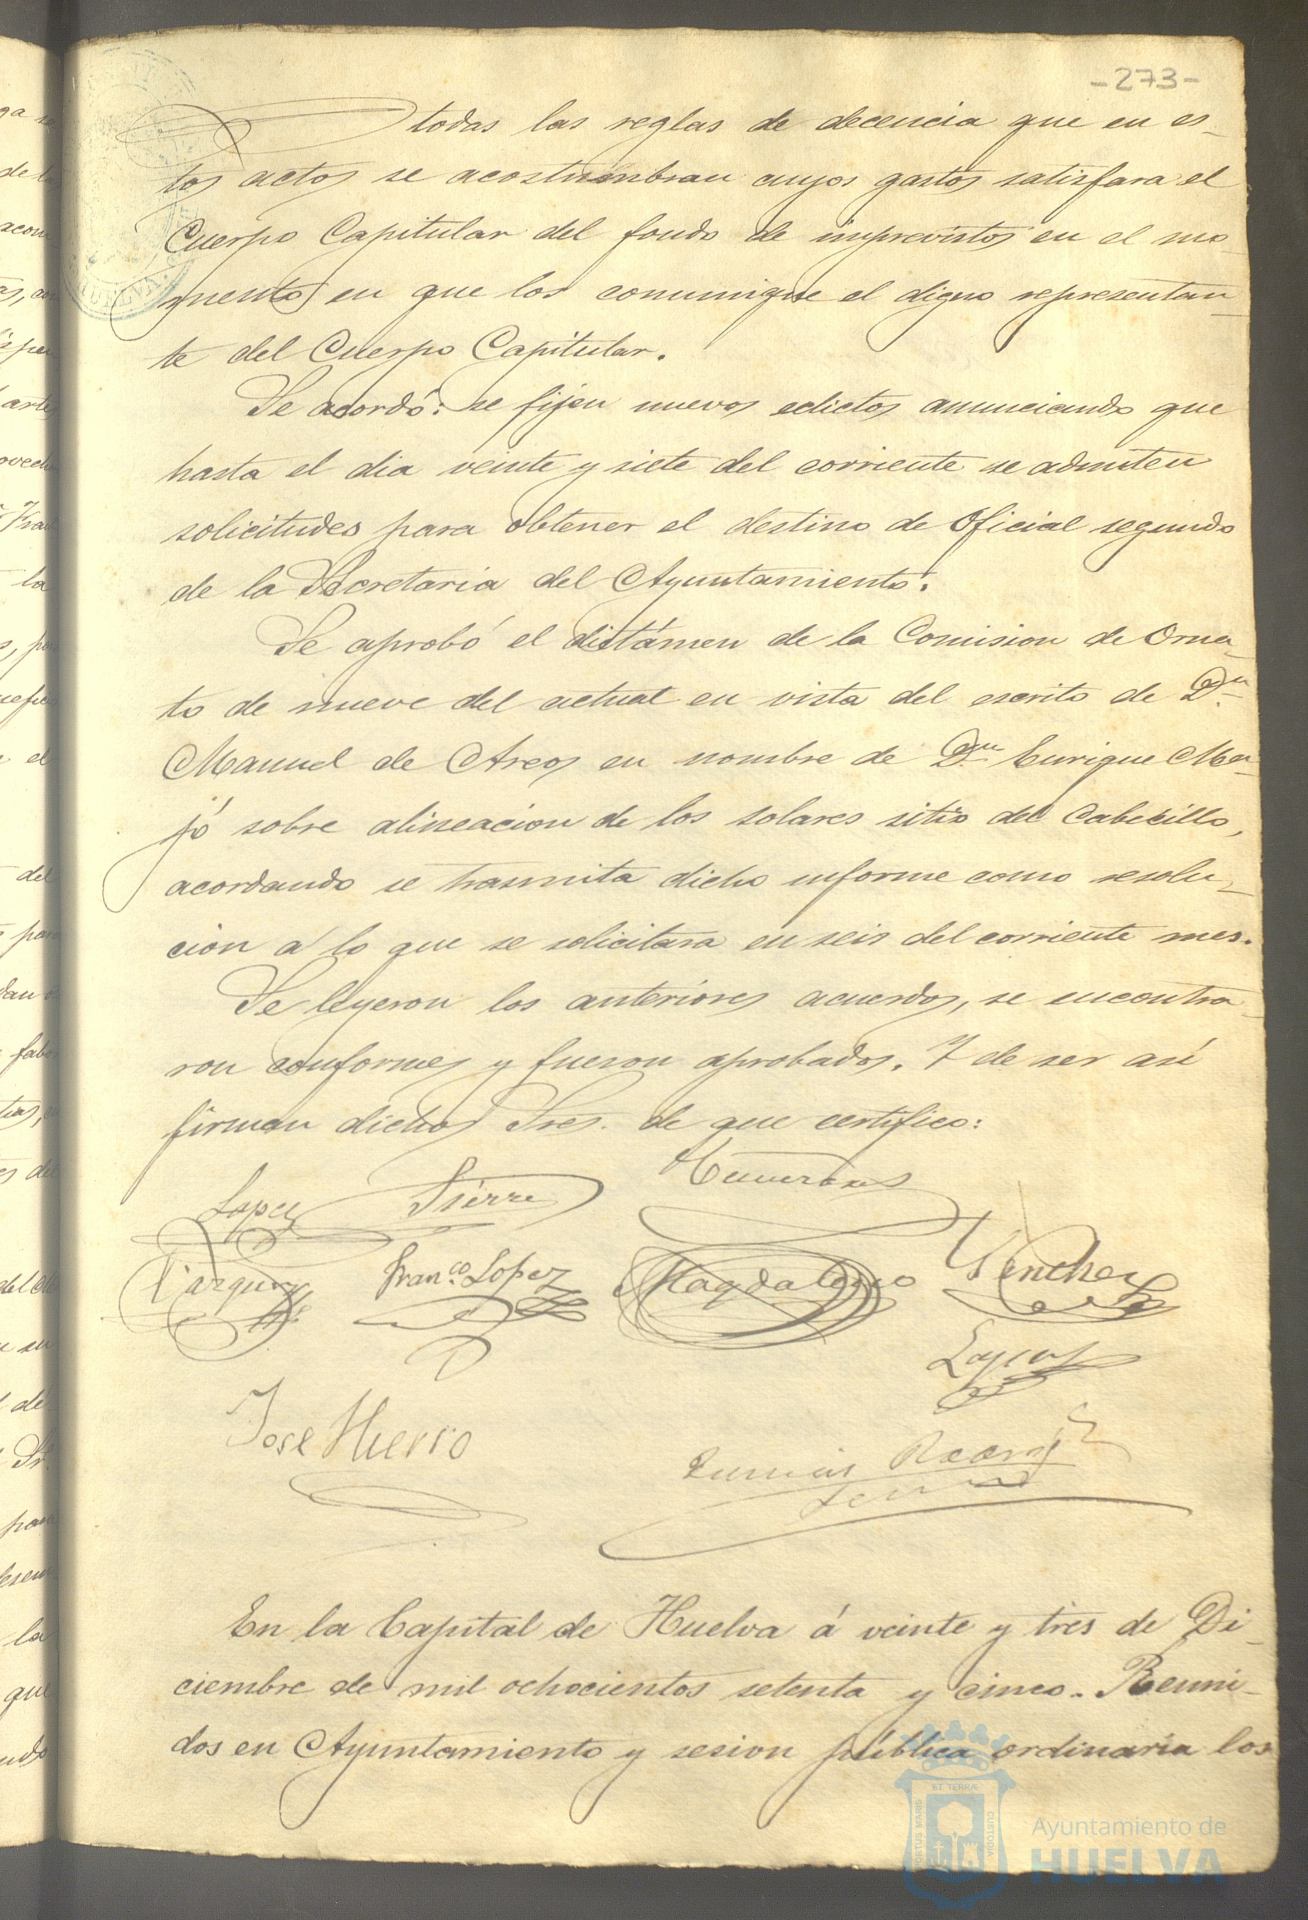 -273-
todas las reglas de decencia que en es-
tos actos se acostumbran cuyos gastos satisfara el
Cuerpo Capitular del fondo de imprevistos en el mo-
mento en que los comunique el digno representan-
te del Cuerpo Capitular.
Se acordó: se fijen nuevos edictos anunciando que
hasta el dia veinte y siete del corriente se admiten
solicitudes para obtener el destino de Oficial segundo
de la Secretaria del Ayuntamiento.
Se aprobó el dictámen de la Comision de Orna-
to de nueve del actual en vista del escrito de Dn.
Manuel de Arcos en nombre de Dn. Enrique
jó sobre alineacion de los solares sitio del Cabecillo,
acordando se trasmita dicho informe como resolu-
cion a lo que se solicitara en seis del corriente mes.
Se leyeron los anteriores acuerdos, se encontra-
ron conformes y fueron aprobados. Y de ser asi
firman dichos Sres. de que certifico:
Lopez Sierra
Vazquez Franco. Lopez Magdaleno Sanchez
José Hierro
En la Capital de Huelva á veinte y tres de Di-
ciembre de mil ochocientos setenta y cinco. Reuni-
dos en Ayuntamiento y sesion pública ordinaria los
Ayuntamiento de
HUELVA